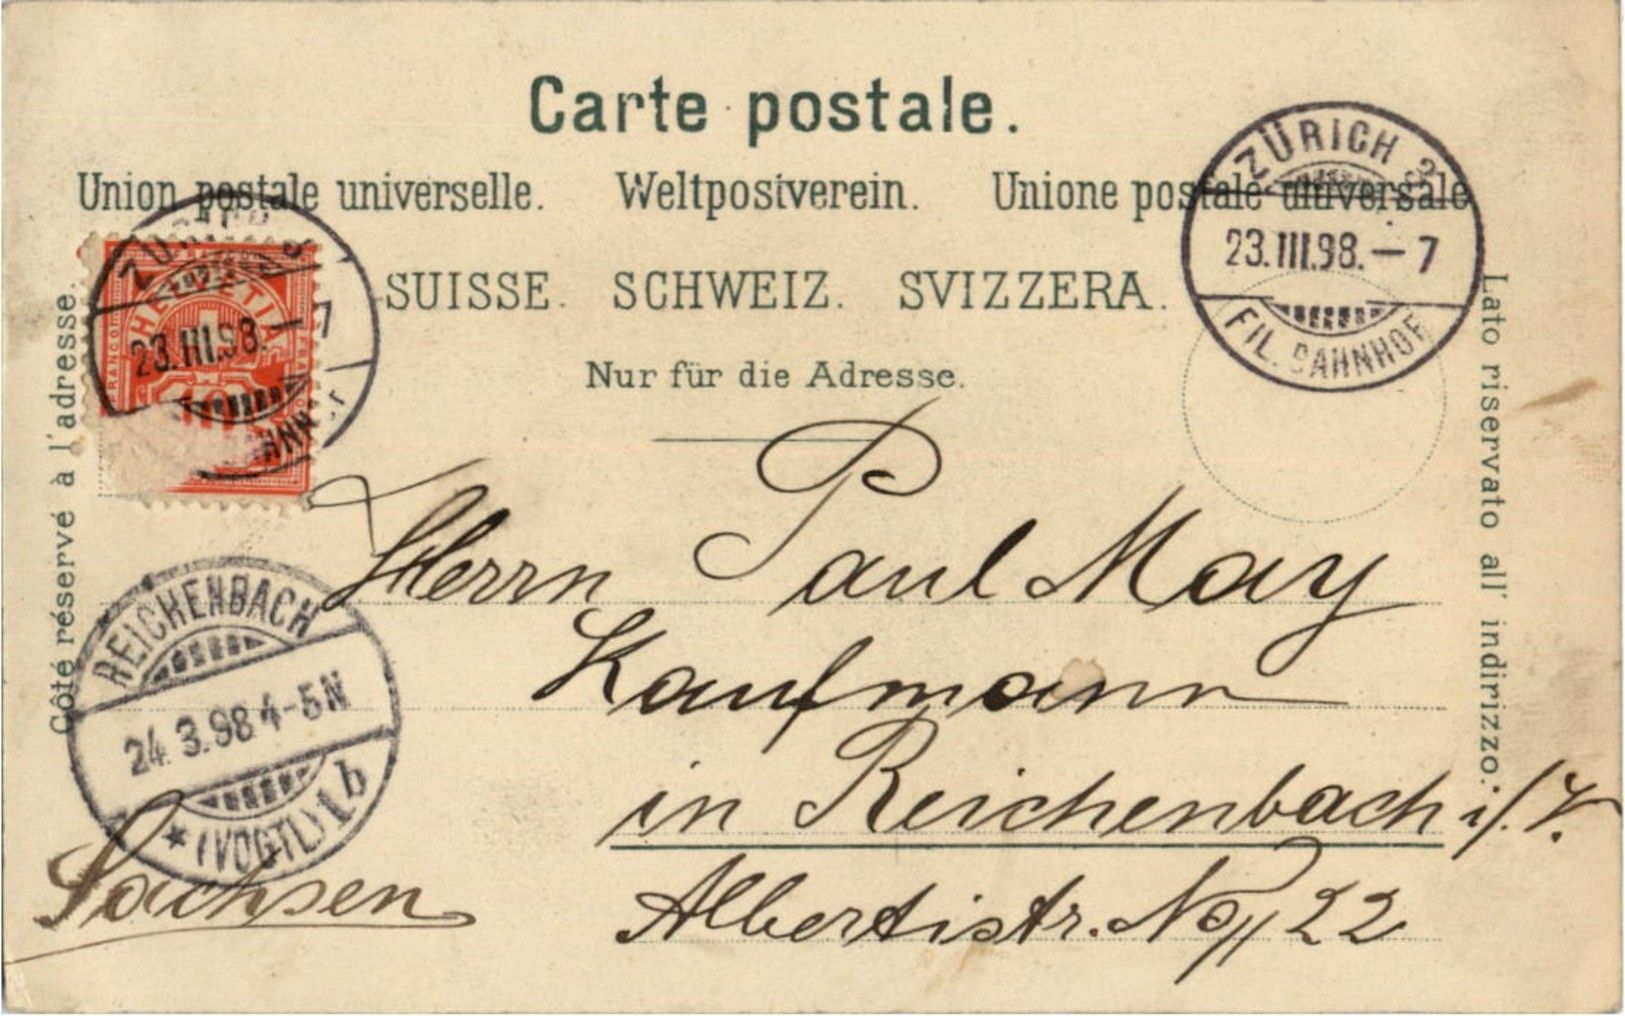 Carte postale.
Union postale universelle. Weltpostverein. Unione postale universale
SUISSE. SCHWEIZ. SVIZZERA.
Nur für die Adresse.
Côté réservé à l'adresse.
Lato riservato all' indirizzo.
HELVETIA
FRANCO
10
23.III.98.–7
ZÜRICH 3
23.III.98.–7
FIL. BAHNHOF
REICHENBACH
24.3.98 4-5N
* (VOGTL) 1 b
Herrn Paul May
Kaufmann
in Reichenbach i/V.
Albertistr. No 22
Sachsen